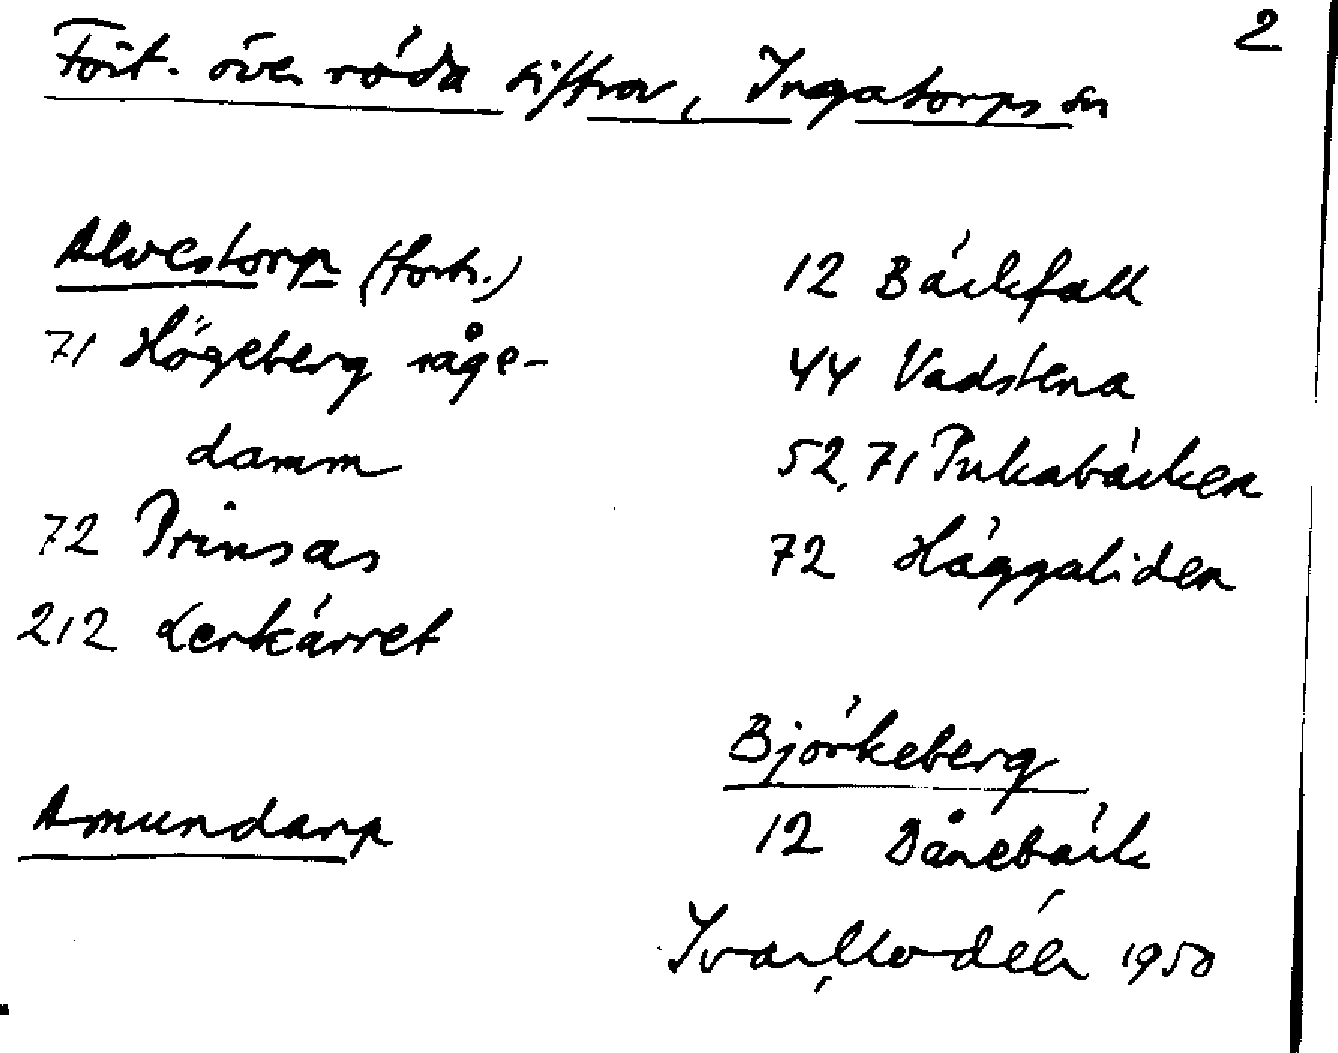 2
Fört. över röda siffror, Ingatorps sn
Alvestorp (forts.)
71 Högeberg såge-
damm
72 Prinsas
212 Lerkärret
Amundarp
12 Bäckfall
44 Vadstena
52, 71 Pukabäcken
72 Häggaliden
Björkeberg
12 Dånebäck
Ivar Modéer 1950